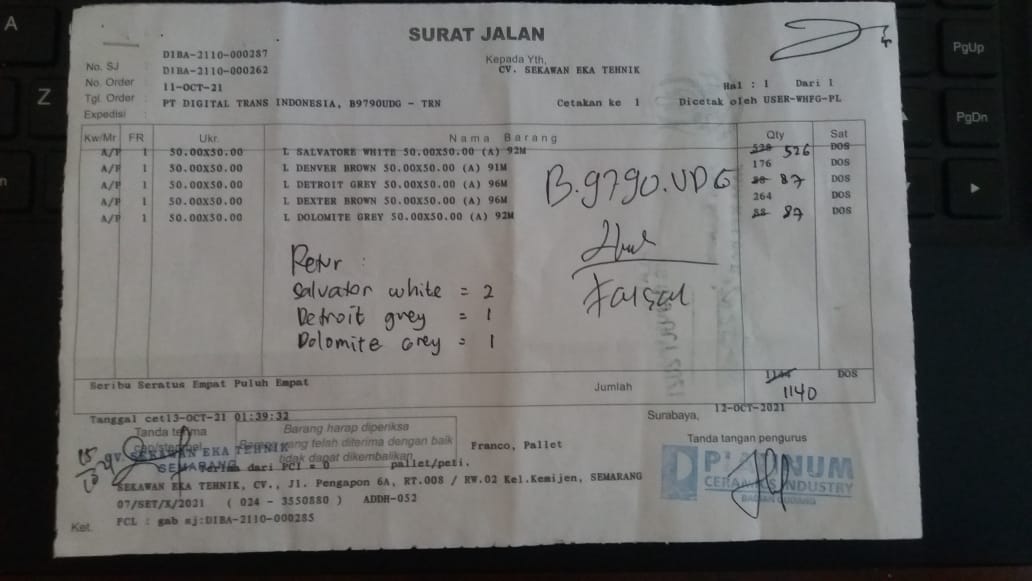 SURAT JALAN
No. SJ DIBA-2110-000287 Kepada Yth,
No. Order DIBA-2110-000262 CV. SEKAWAN EKA TEHNIK
Tgl. Order 11-OCT-21 Hal : 1 Dari 1
Expedisi PT DIGITAL TRANS INDONESIA, B9790UDG - TRN Cetakan ke 1 Dicetak oleh USER-WHFG-PL
Kw/Mr FR Ukr. Nama Barang Qty Sat
A/P 1 50.00X50.00 L SALVATORE WHITE 50.00X50.00 (A) 92M 528 526 DOS
A/P 1 50.00X50.00 L DENVER BROWN 50.00X50.00 (A) 91M 176 DOS
A/P 1 50.00X50.00 L DETROIT GREY 50.00X50.00 (A) 96M 88 87 DOS
A/P 1 50.00X50.00 L DEXTER BROWN 50.00X50.00 (A) 96M 264 DOS
A/P 1 50.00X50.00 L DOLOMITE GREY 50.00X50.00 (A) 92M 88 87 DOS
B.9790.UDG
Faisal
Retur :
Salvator white = 2
Detroit grey = 1
Dolomite Grey = 1
Seribu Seratus Empat Puluh Empat Jumlah 1144 DOS
1140
Tanggal cet13-OCT-21 01:39:32 Surabaya, 12-OCT-2021
Tanda terima Barang harap diperiksa
cap/stempel Barang yang telah diterima dengan baik Franco, Pallet Tanda tangan pengurus
tidak dapat dikembalikan
CV. SEKAWAN EKA TEHNIK
SEMARANG
Terima dari PCI = 0 pallet/peti.
SEKAWAN EKA TEHNIK, CV., Jl. Pengapon 6A, RT.008 / RW.02 Kel.Kemijen, SEMARANG
07/SET/X/2021 ( 024 - 3550880 ) ADDH-052
Ket. PCL : gab sj:DIBA-2110-000285
PLATINUM
CERAMICS INDUSTRY
BAGIAN GUDANG
A
Z
PgUp
PgDn